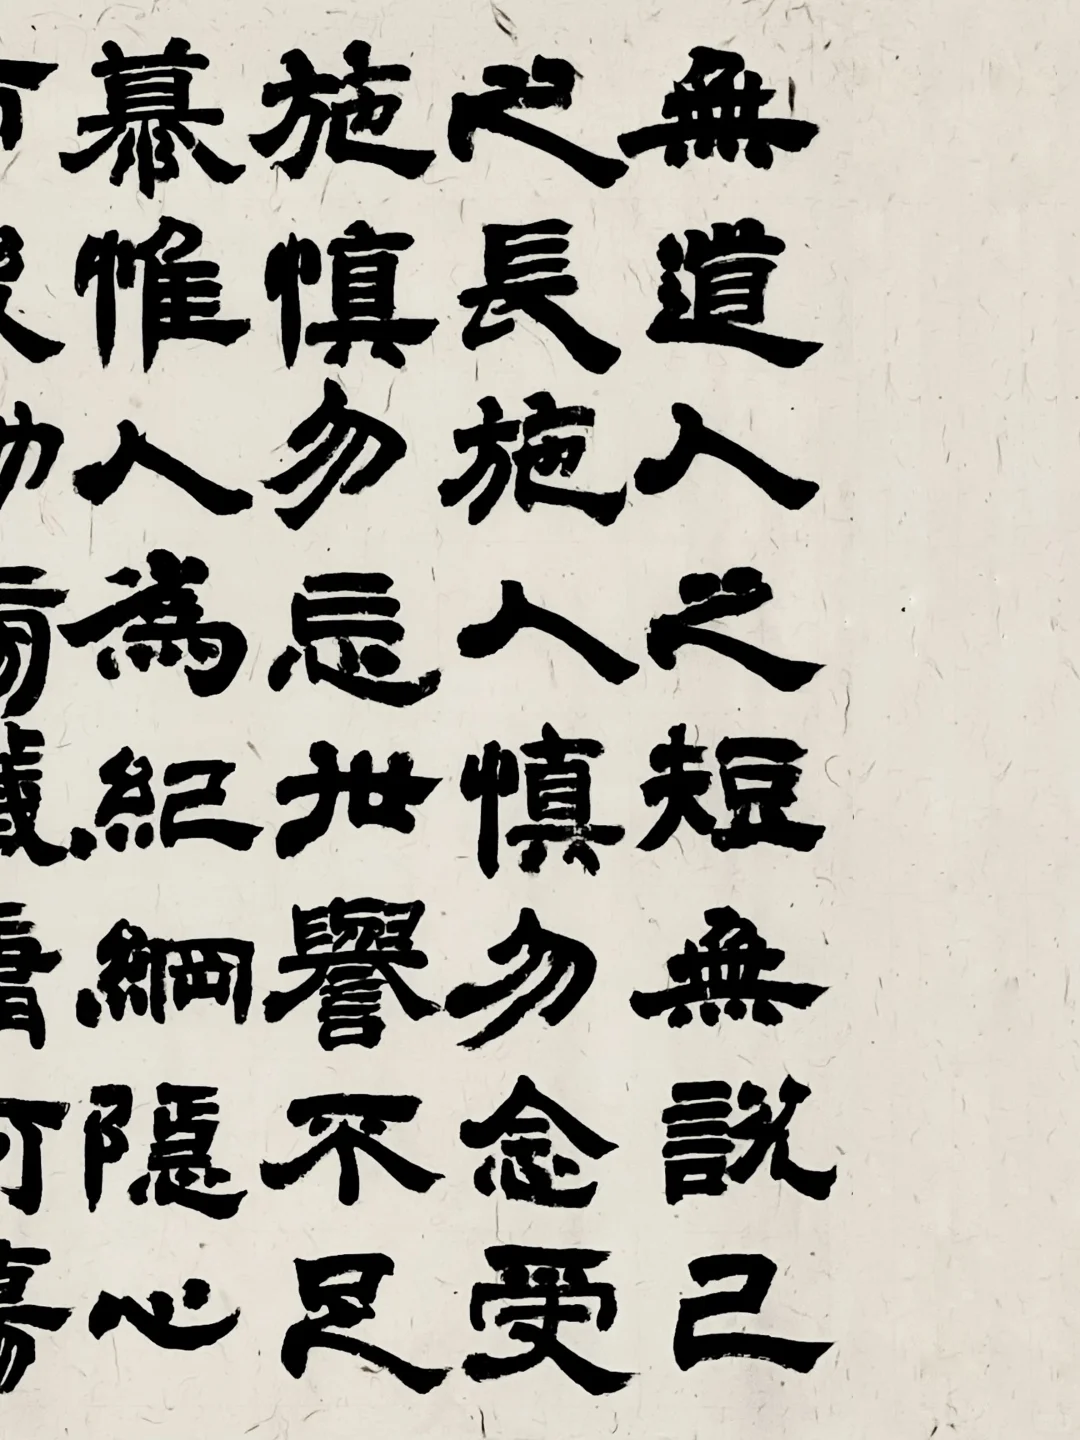 無道人之短無說己
之長施人慎勿念受
施慎勿忘世譽不足
慕惟人為紀綱隱心